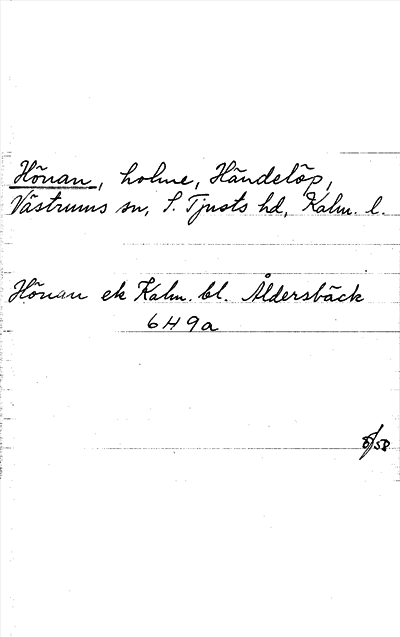 Hönan, holme, Händelöp,
Västrums sn, S. Tjusts hd, Kalm. l.
Hönan ek Kalm. bl. Åldersbäck
6H9a
/58